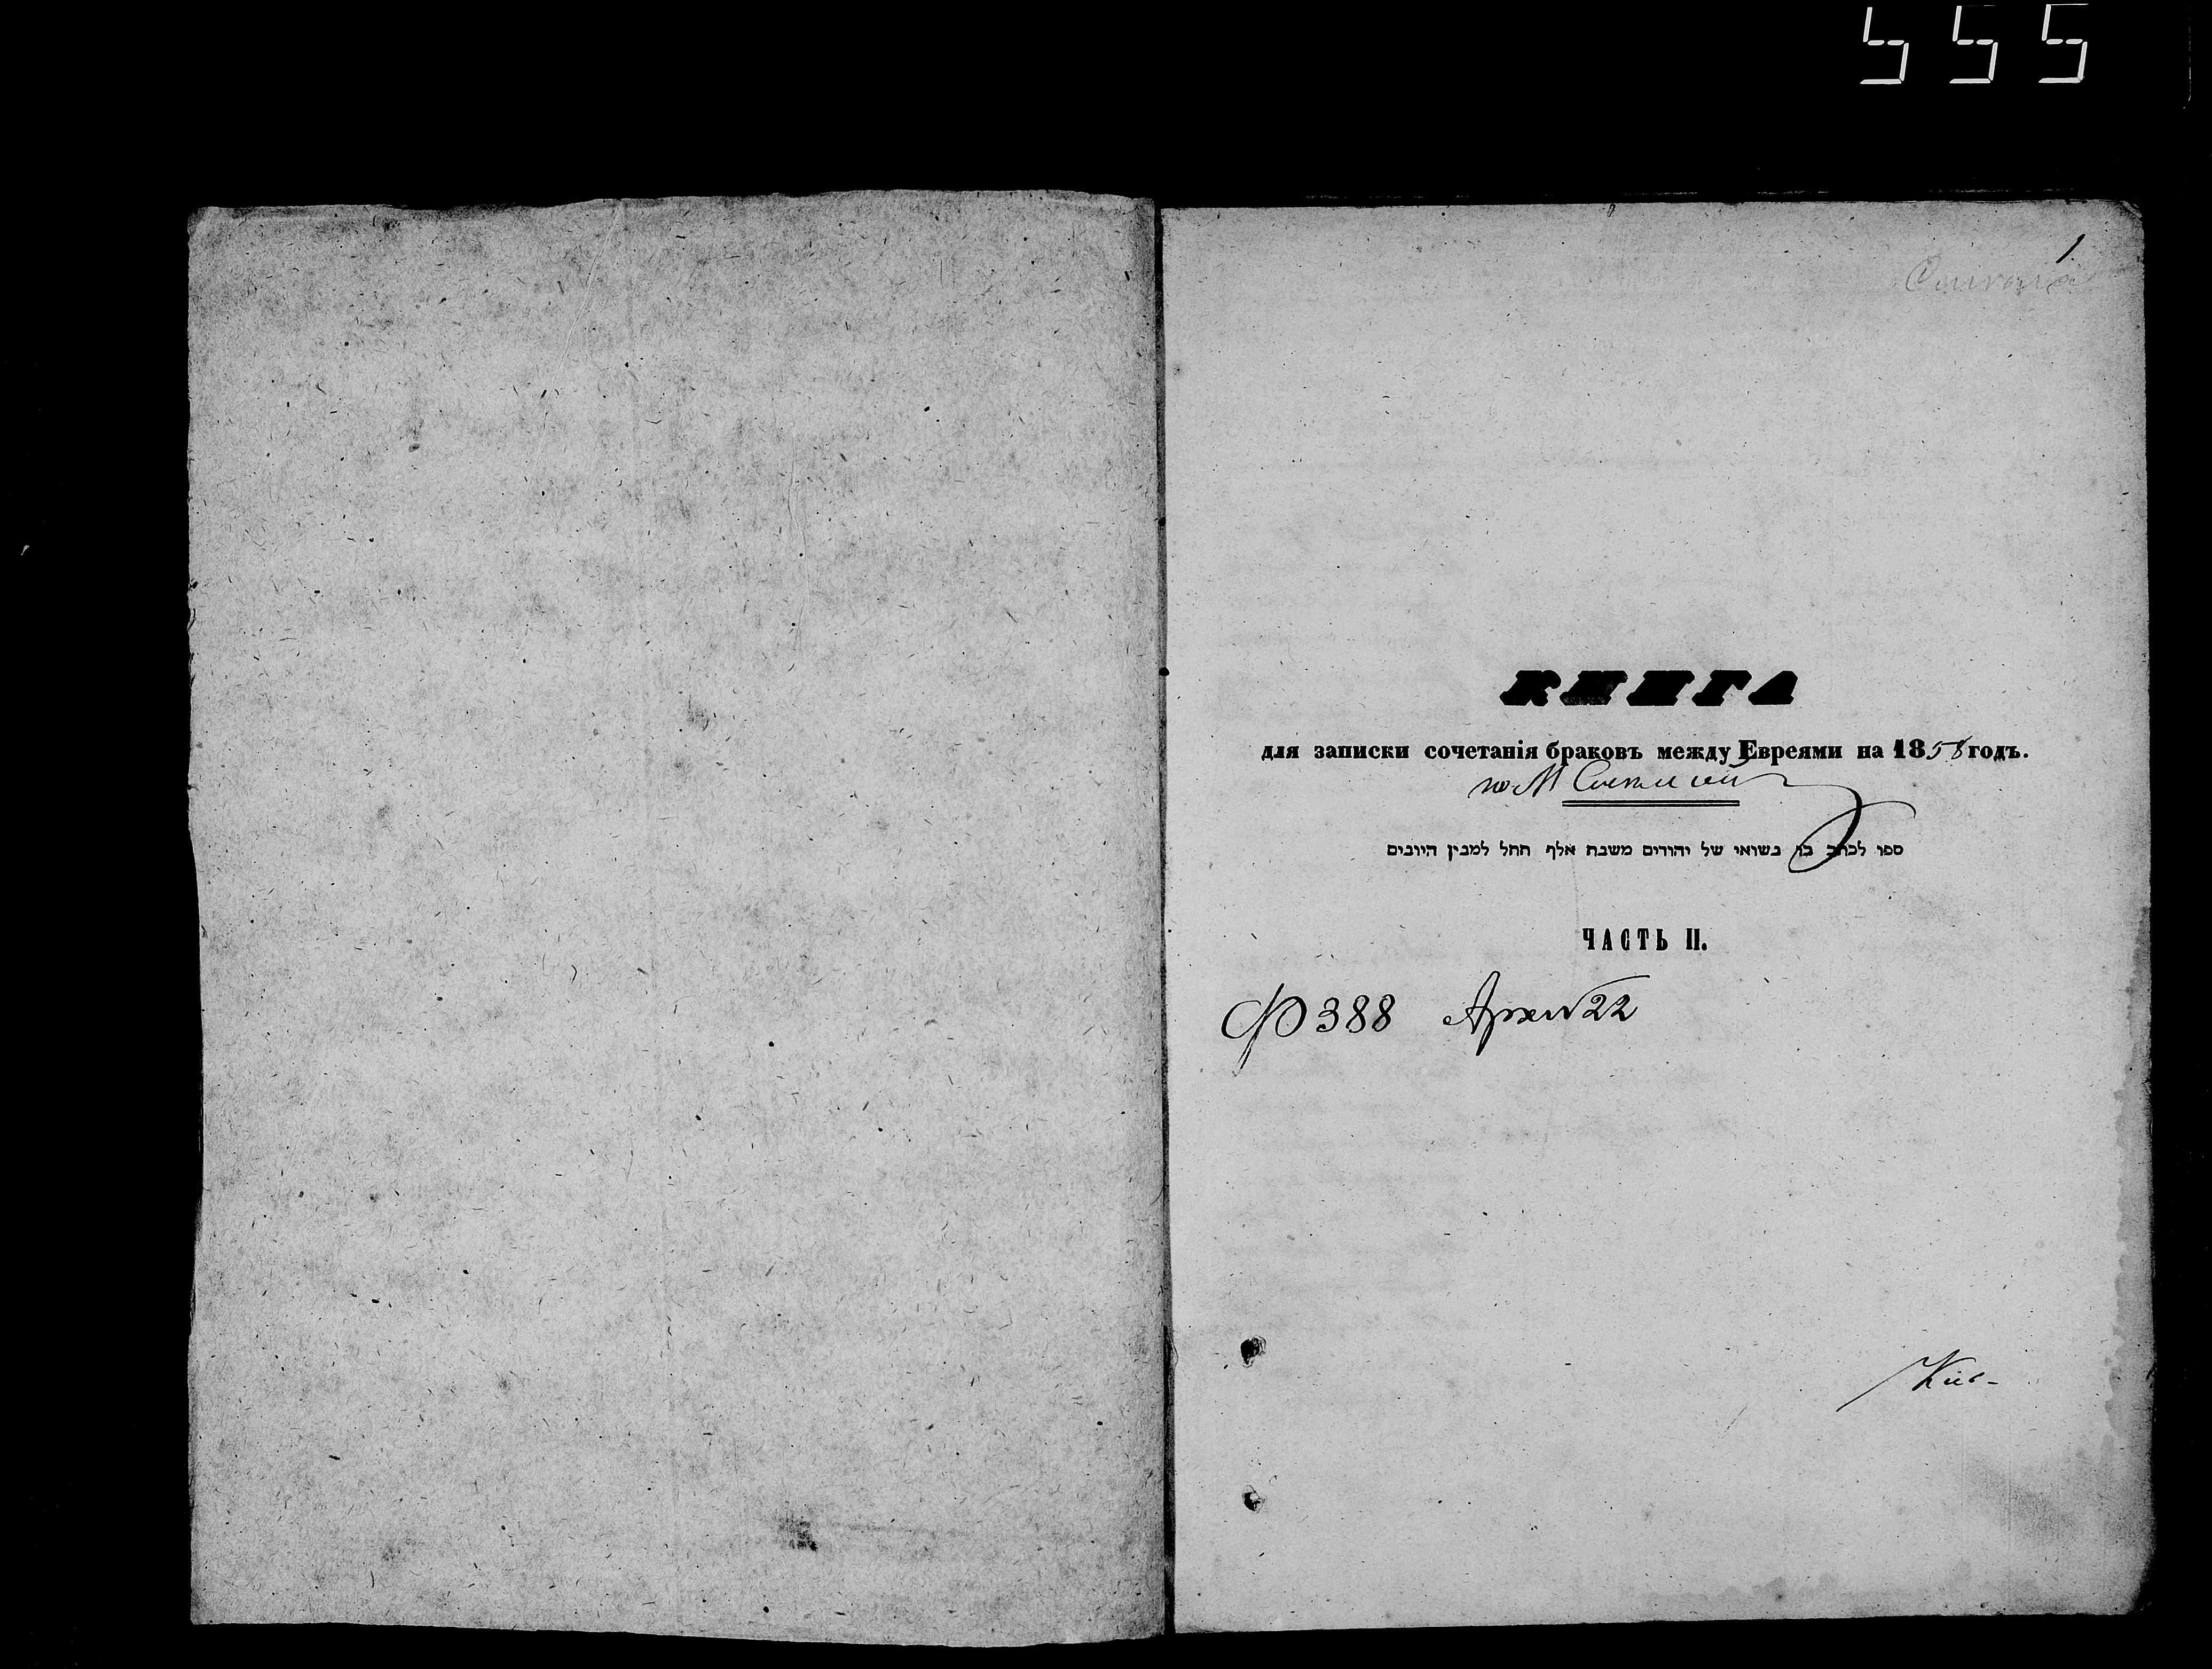 555
1
КНИГА
для записки сочетанія браковъ между Евреями на 1858 годъ.
по М
ספר לכתב בו נשואי של יהודים משנת אלף תתל למנין היונים
ЧАСТЬ II.
Ф 388 Архив 22